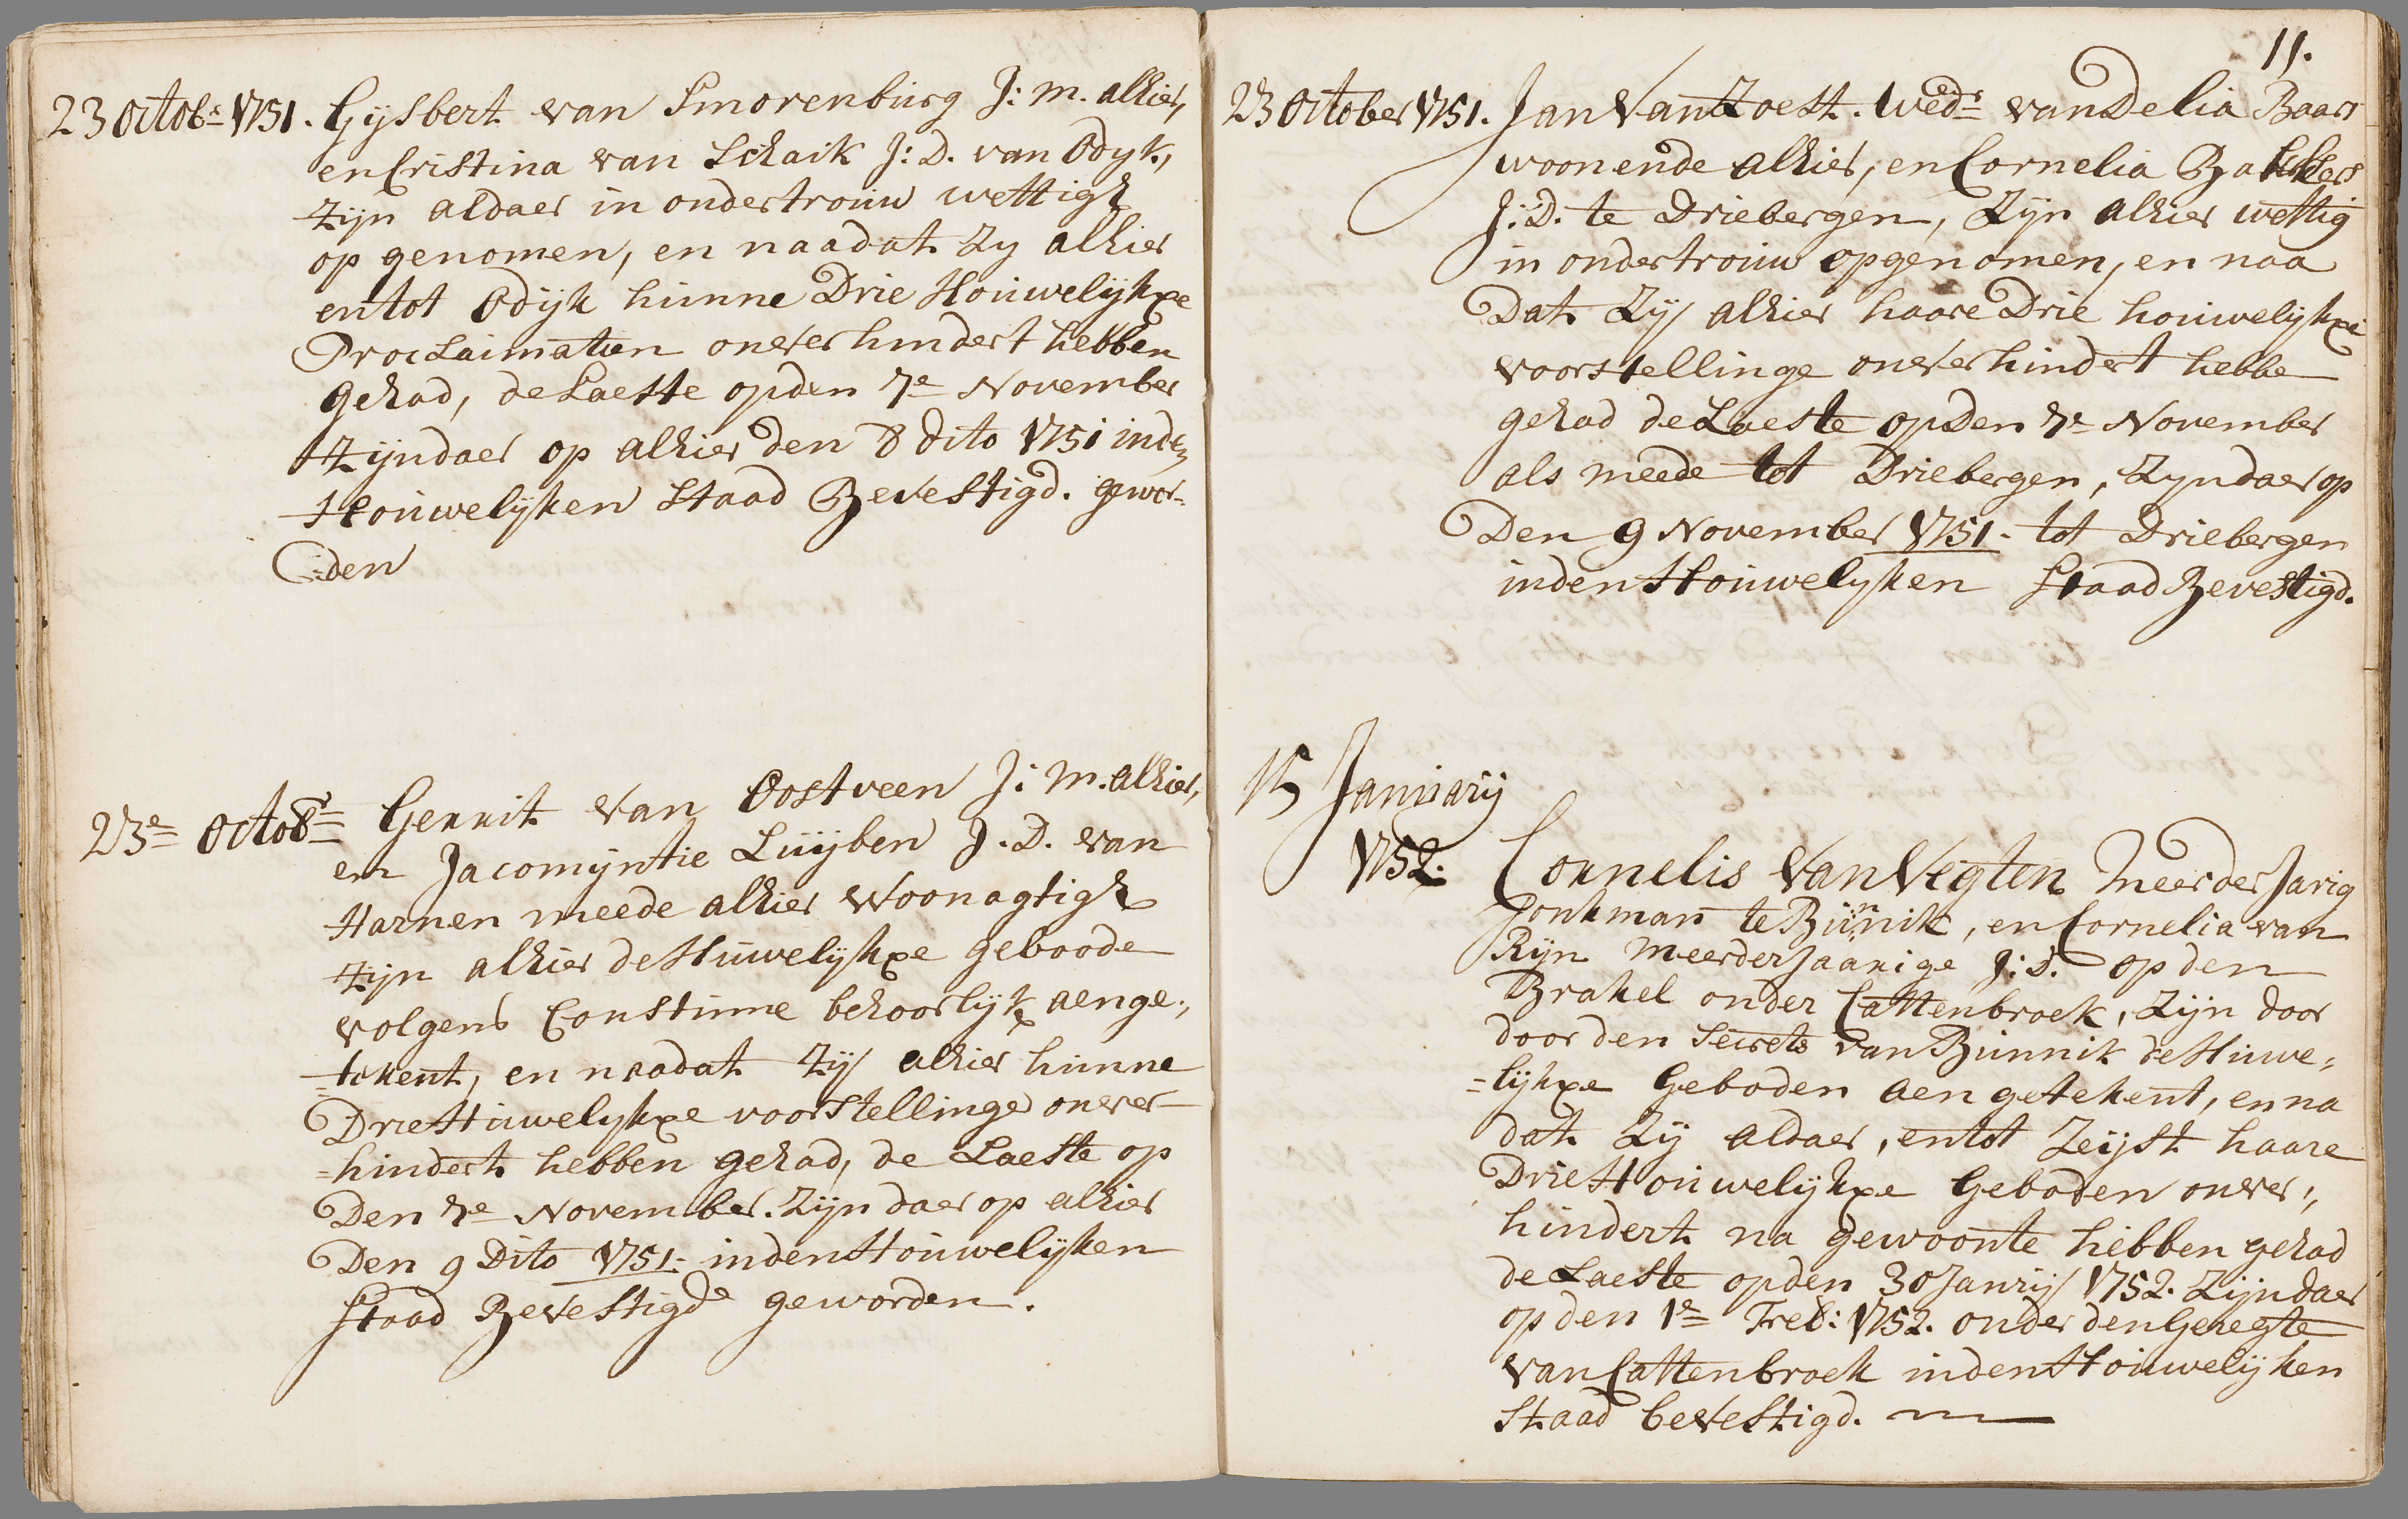 23 octob:r 1751. Gijsbert van Smorenburg J: m. alhier,
en Cristina van Schaik J: D. van Odyk,
zijn aldaer in ondertrouw wettigh
op genomen, en naadat zy alhier
en tot Odijk hunne Drie Houwelijkxe
Proclaimatien onverhindert hebben
gehad, de Laeste op den 7e November
zijn daer op alhier den 8 dito 1751 in den
Houwelijken Staad Bevestigd. gewor-
:den
23e octobr Gerrit van Oostveen J: m. alhier,
en Jacomijntie Luijben J. D. van
Harnen meede alhier woonagtigh
zijn alhier de Huwelijkxe geboode
volgens Constume behoorlijk aenge:,
=tekent, en naadat zij alhier hunne
Drie Huwelykxe voorstellinge onver-
=hindert hebben gehad, de Laeste op
Den 7e November. zijn daer op alhier
Den 9 Dito 1751: in den Houwelijken
staad Bevestigde geworden.
11.
23 October 1751. Jan Van Zoest. Wedr van Delia Baars
woonende alhier, en Cornelia Bakkers
J: D. te Driebergen, Zijn alhier wettig
in ondertrouw opgenomen, en naa
Dat Zij alhier haare Drie houwelijkxe
voorstellinge onverhindert hebbe
gehad de Laeste op Den 7e November
als meede tot Driebergen, Zyn daer op
Den 9 November 1751. tot Driebergen
in den Houwelyken staad Bevestigd.
15 Januarij
1752. Cornelis Van Vegten Meerder Jarig
Jonkman te Bunnik, en Cornelia van
Rijn Meerder Jaarige J: D. op den
Brakel onder Cattenbroek, Zijn door
door den Secrets van Bunnik de Huwe=
=lijkxe Geboden aen getekent, en na
dat Zij aldaer, en tot Zeijst haare
Drie Houwelijkxe Geboden onver:,
hindert na gewoonte hebben gehad
de Laeste op den 30 Janrij 1752. Zijn daer
op den 1e Freb: 1752. onder den Geregte
van Cattenbroek in den Houwelijken
Staad bevestigd.